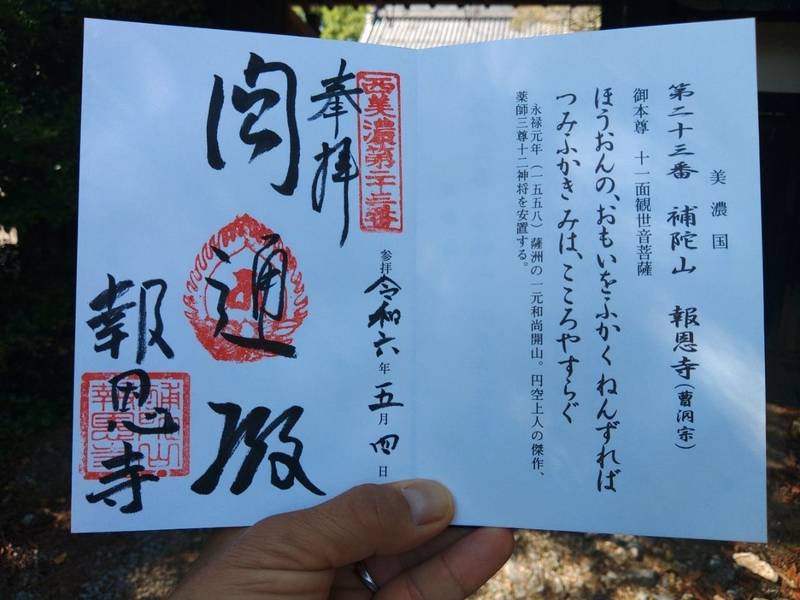 美濃国
第二十三番 補陀山 報恩寺(曹洞宗)
御本尊 十一面観世音菩薩
ほうおんの、おもいをふかくねんずれば
つみふかきみは、こころやすらぐ
永禄元年(一五五八)薩洲の一元和尚開山。円空上人の傑作、
薬師三尊十二神将を安置する。
西美濃第二十三番
参拝 令和六年五月四日
奉拝
圓通殿
報恩寺
補陀山
報恩寺